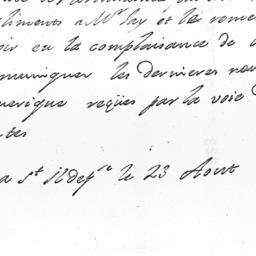 pliments a Mr Jay et les remer
oir eu la complaisance de l
muniquer les dernieres nou
merique reçües par la voie d
tes
a St Ildefse le 23 Aout